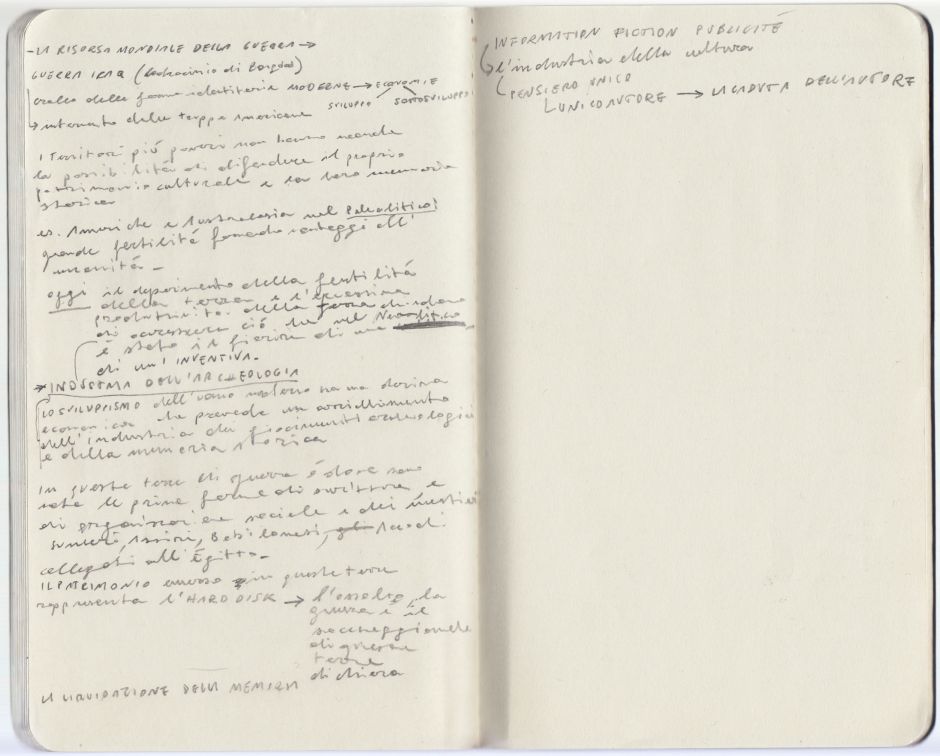 - LA RISORSA MONDIALE DELLA GUERRA →
GUERRA IRAQ (ladrocinio di Bagdad)
crollo delle forme identitarie MODERNE → ECONOMIE
SVILUPPO SOTTOSVILUPPO
→ intervento delle truppe americane
I Territori più poveri non hanno neanche
la possibilità di difendere il proprio
patrimonio culturale e la loro memoria
storica
es. Americhe e Australasia nel Paleolitico:
grande fertilità vantaggi all'
umanità -
oggi il deperimento della fertilità
della terra e l'
produttività della terra
di ciò che nel Neolitico
è stato il fiorire di una
di un' INVENTIVA.
→ INDUSTRIA DELL'ARCHEOLOGIA
LO SVILUPPISMO dell'uomo moderno ha una
economica che prevede un
dell'industria dei giacimenti archeologici
e della memoria storica
In queste terre di guerra è dove sono
nate le prime forme di scrittura e
di organizzazione sociale e dei mestieri
Sumeri, Assiri, Babilonesi, gli Accadi
collegati all'Egitto -
IL PATRIMONIO emerso in queste terre
rappresenta l'HARD DISK → l'assalto, la
guerra e il
saccheggio
di queste
terre
dichiara
LA LIQUIDAZIONE DELLA MEMORIA
INFORMATION FICTION PUBLICITÉ
l'industria della cultura
PENSIERO UNICO
L'UNICO AUTORE → LA CADUTA DELL'AUTORE